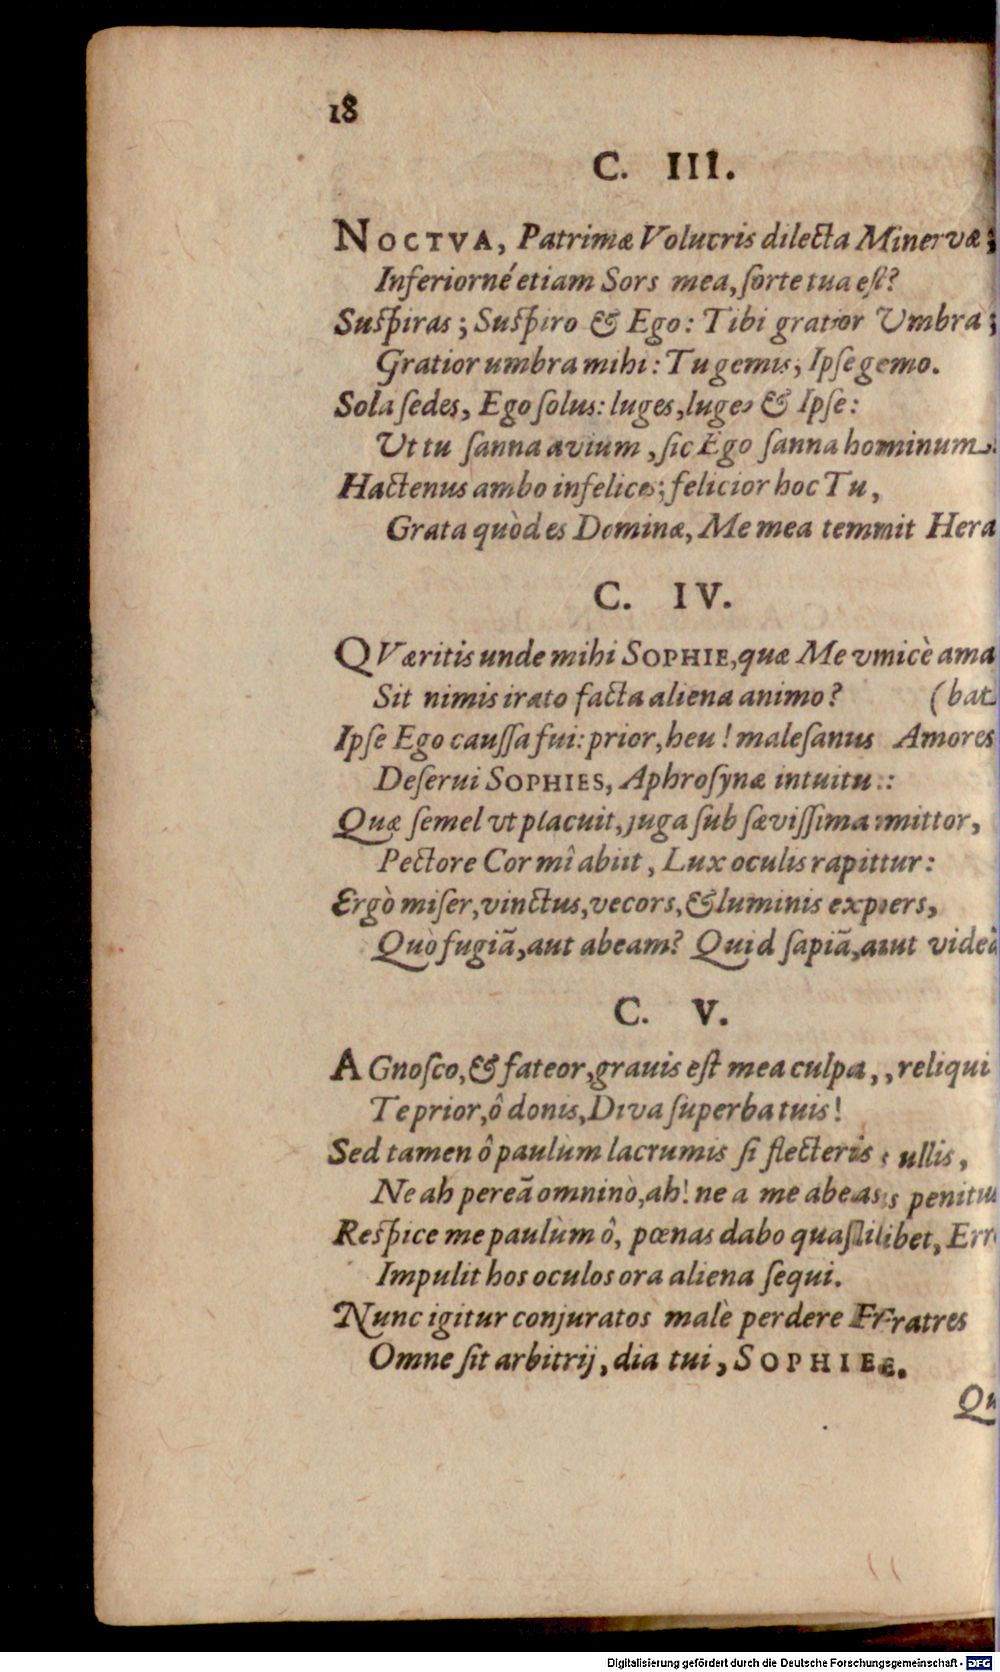 18
C. III.
NOCTVA, Patrimæ Volucris dilecta Minervæ;
Inferiorné etiam Sors mea, sorte tua est?
Suspiras; Suspiro & Ego: Tibi gratior Umbra;
Gratior umbra mihi: Tu gemis; Ipse gemo.
Sola sedes, Ego solus: luges, lugeo & Ipse:
Ut tu sanna avium, sic Ego sanna hominum.
Hactenus ambo infelices; felicior hoc Tu,
Grata quòd es Dominæ, Me mea temnit Hera
C. IV.
QVæritis unde mihi SOPHIE, quæ Me vnicè ama
Sit nimis irato facta aliena animo? (bat
Ipse Ego caussa fui: prior, heu! malesanus Amores
Deserui SOPHIES, Aphrosynæ intuitu:
Quæ semel vt placuit, juga sub sævissima mittor,
Pectore Cor mî abiit, Lux oculis rapitur:
Ergò miser, vinctus, vecors, & luminis expers,
Quò fugiã, aut abeam? Quid sapiã, aut videã
C. V.
AGnosco, & fateor, gravis est mea culpa, reliqui
Te prior, ô donis, Diva superba tuis!
Sed tamen ô paulùm lacrumis si flecteris ullis,
Ne ah pereã omninò, ah! ne a me abeas penitus
Respice me paulùm ô, pœnas dabo quaslibet, Erro
Impulit hos oculos ora aliena sequi.
Nunc igitur conjuratos malè perdere Fratres
Omne sit arbitrij, dia tui, SOPHIE.
Qu
Digitalisierung gefördert durch die Deutsche Forschungsgemeinschaft - DFG